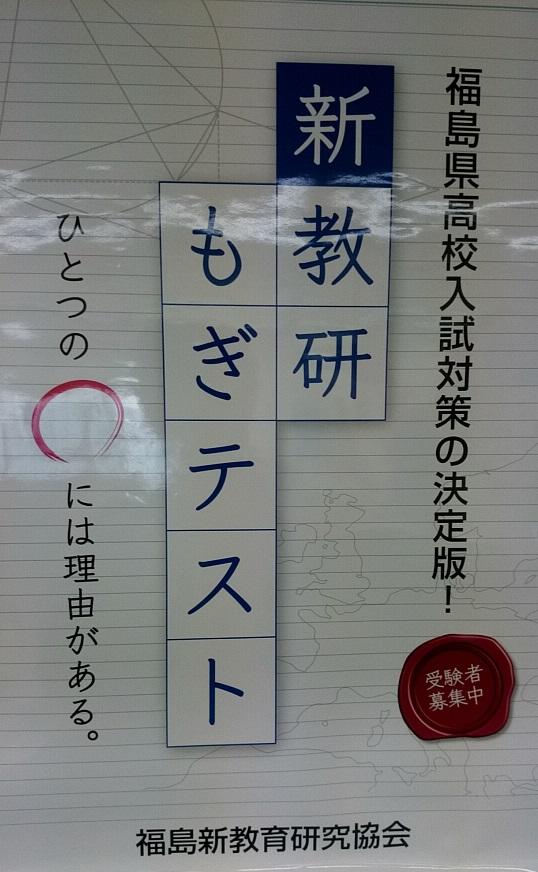 福島県高校入試対策の決定版！
受験者
募集中
新教研
もぎテスト
ひとつの○には理由がある。
福島新教育研究協会